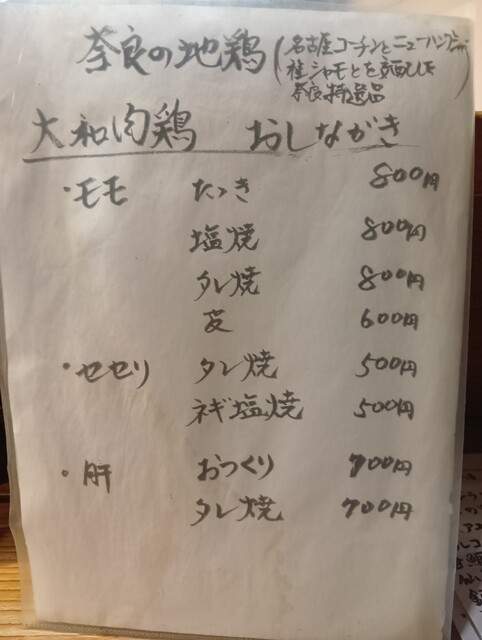 奈良の地鶏
(名古屋コーチンとニューハンプ
種シャモとを交配した
奈良特選品
大和肉鶏 おしながき
・モモ たつき 800円
塩焼 800円
タレ焼 800円
皮 600円
・セセリ タレ焼 500円
ネギ塩焼 500円
・肝 おつくり 700円
タレ焼 700円